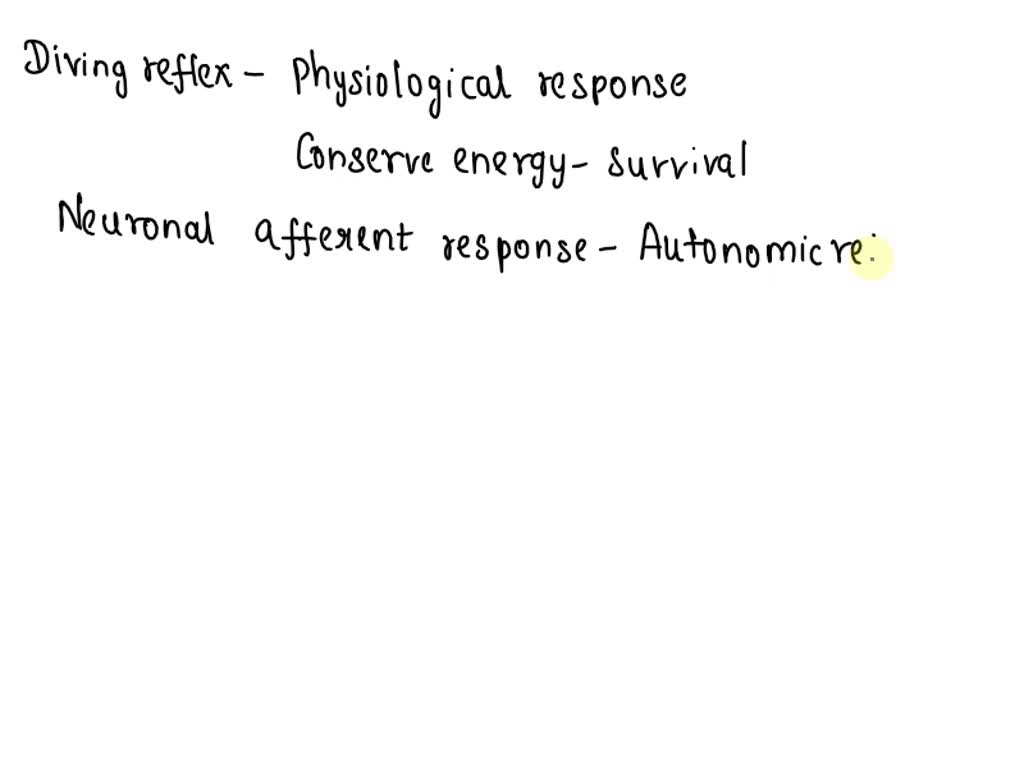 Diving reflex - Physiological response
Conserve energy - Survival
Neuronal afferent response - Autonomic